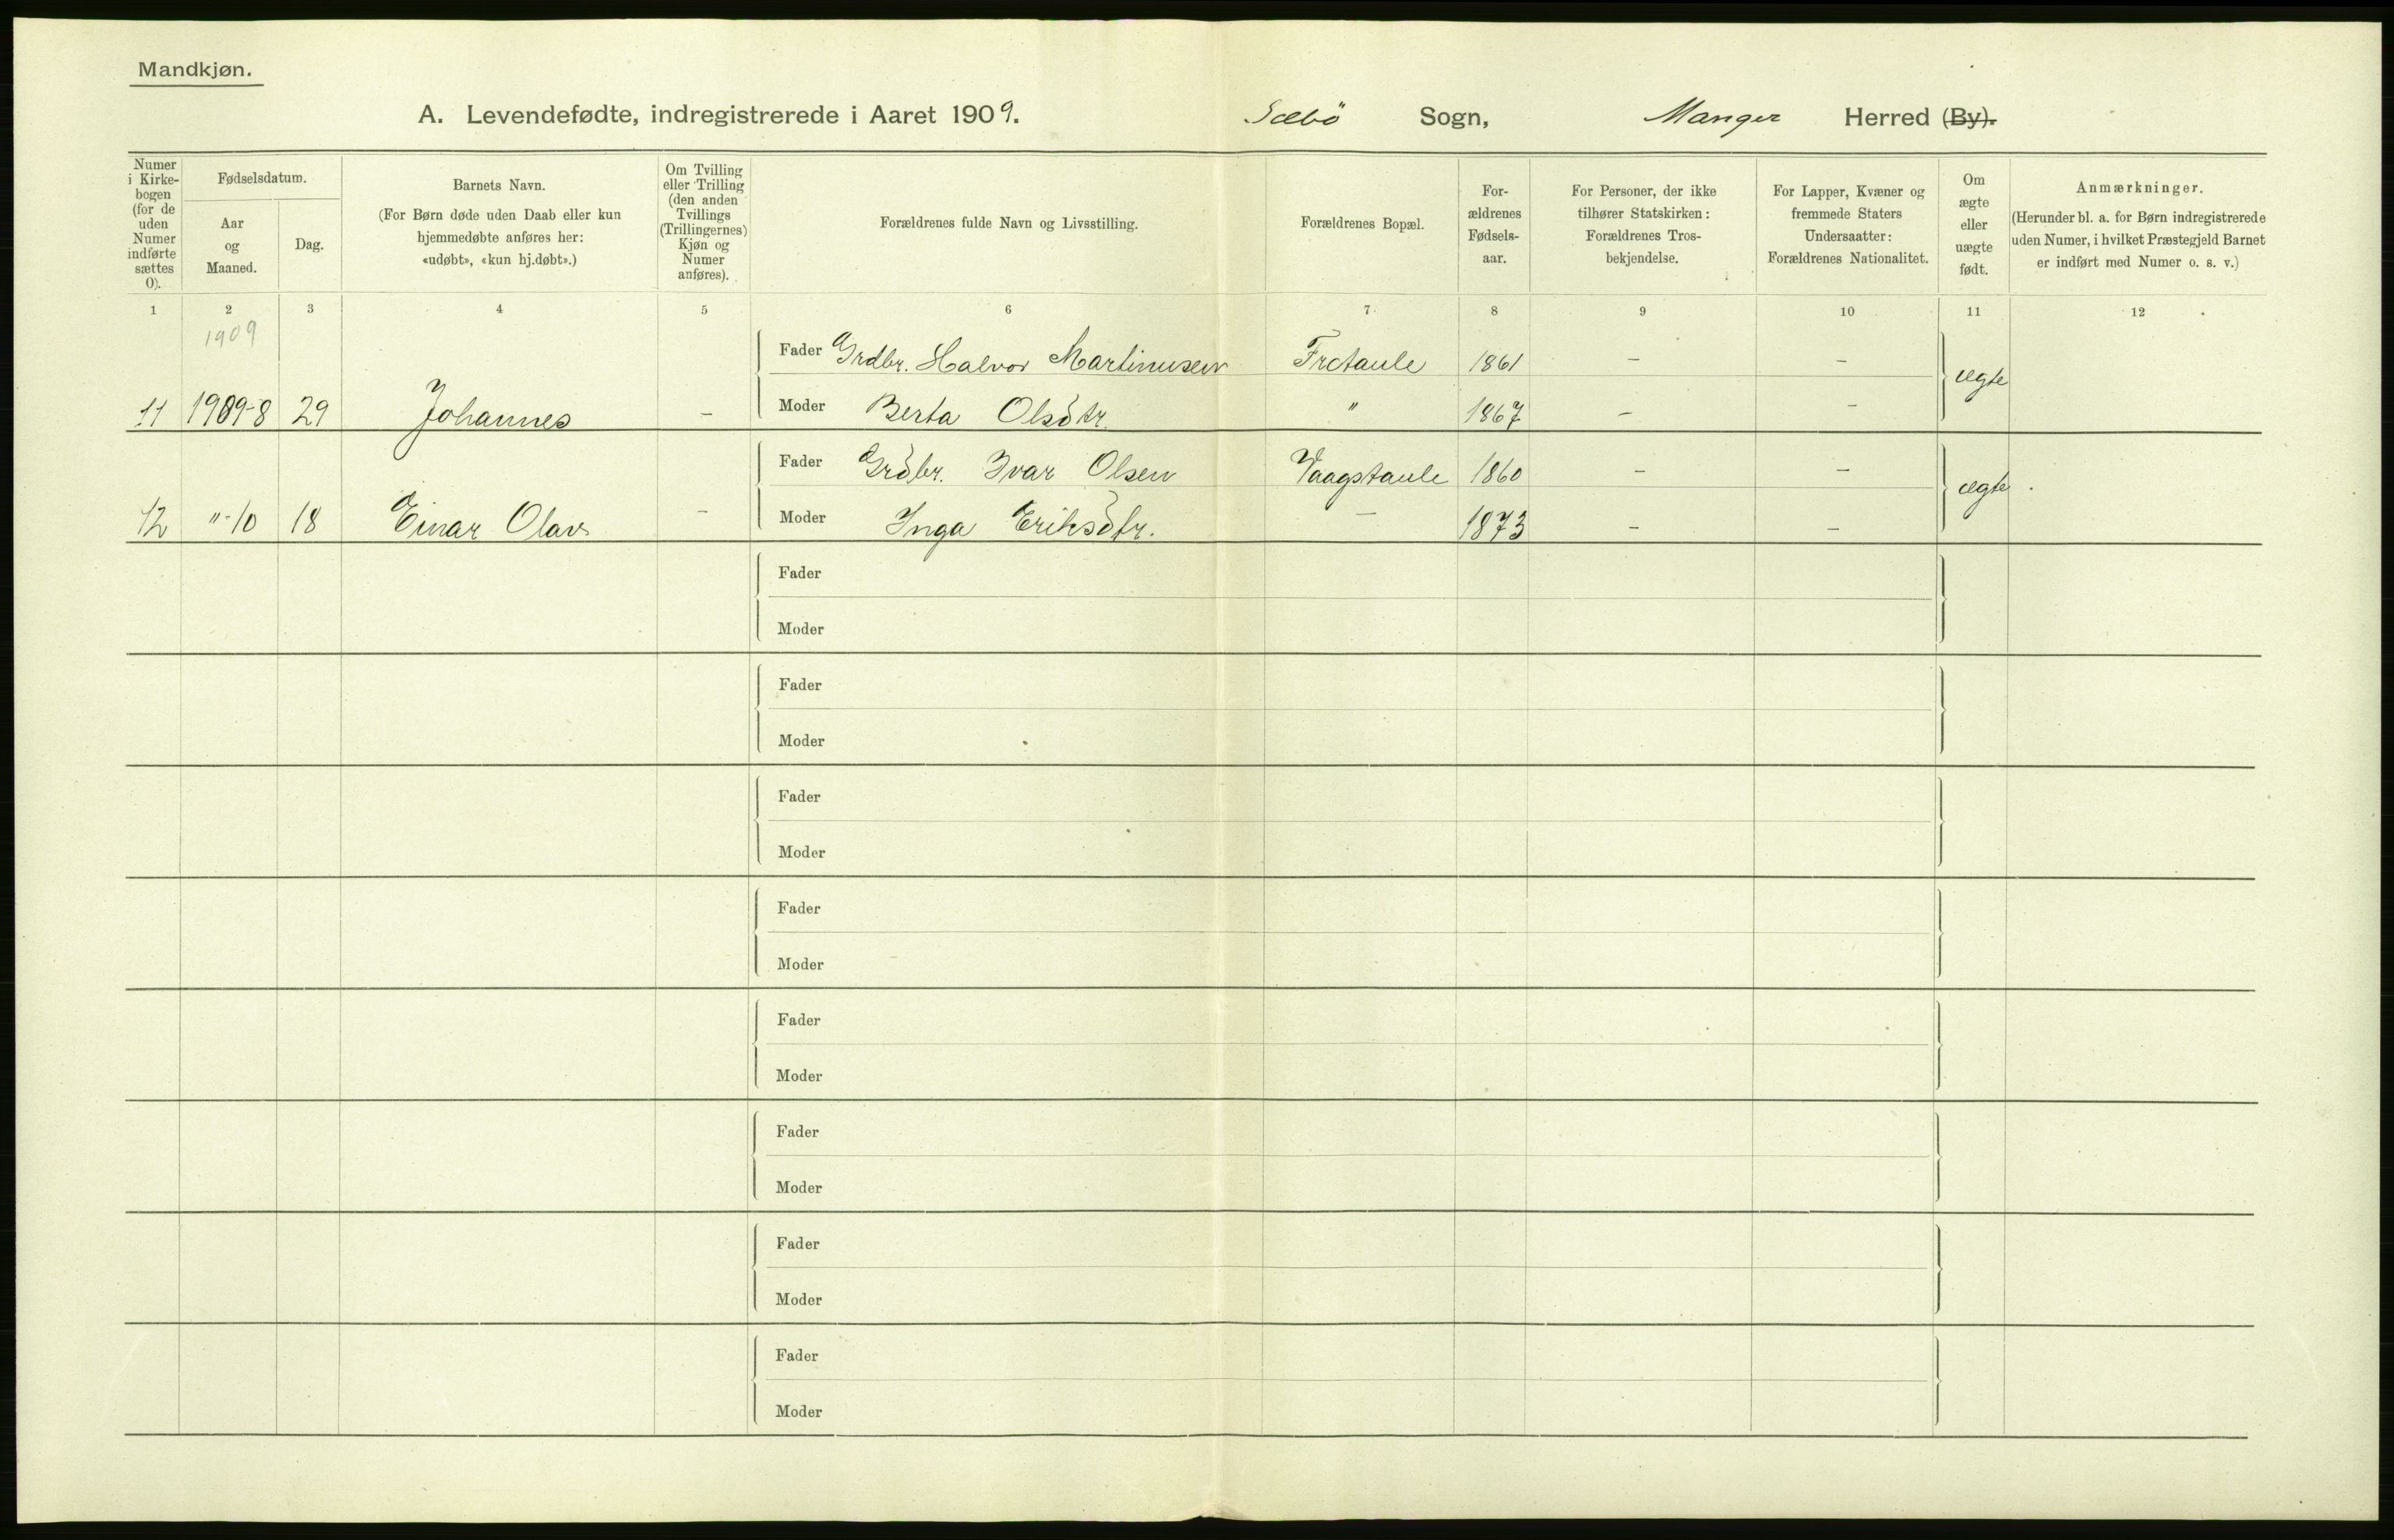 Mandkjøn.
A. Levendefødte, indregistrerede i Aaret 1909. Sæbö Sogn, Manger Herred (By).
Numer i Kirkebogen (for de uden Numer indførte sættes 0).
Fødselsdatum.
Aar og Maaned.
Dag.
Barnets Navn.
(For Børn døde uden Daab eller kun hjemmedøbte anføres her: «udøbt», «kun hj.døbt».)
Om Tvilling eller Trilling (den anden Tvillings (Trillingernes) Kjøn og Numer anføres).
Forældrenes fulde Navn og Livsstilling.
Forældrenes Bopæl.
Forældrenes Fødselsaar.
For Personer, der ikke tilhører Statskirken: Forældrenes Trosbekjendelse.
For Lapper, Kvæner og fremmede Staters Undersaatter: Forældrenes Nationalitet.
Om ægte eller uægte født.
Anmærkninger.
(Herunder bl. a. for Børn indregistrerede uden Numer, i hvilket Præstegjeld Barnet er indført med Numer o. s. v.)
1 2 3 4 5 6 7 8 9 10 11 12
1909
Fader Grdbr. Halvor Martinusen Fretaule 1861 – – ægte
11 1909-8 29 Johannes – Moder Berta Olsdtr. " 1867 – –
Fader Grdbr. Ivar Olsen Vaagstaule 1860 – – ægte
12 "-10 18 Einar Olav – Moder Inga Eriksdtr. – 1873 – –
Fader
Moder
Fader
Moder
Fader
Moder
Fader
Moder
Fader
Moder
Fader
Moder
Fader
Moder
Fader
Moder